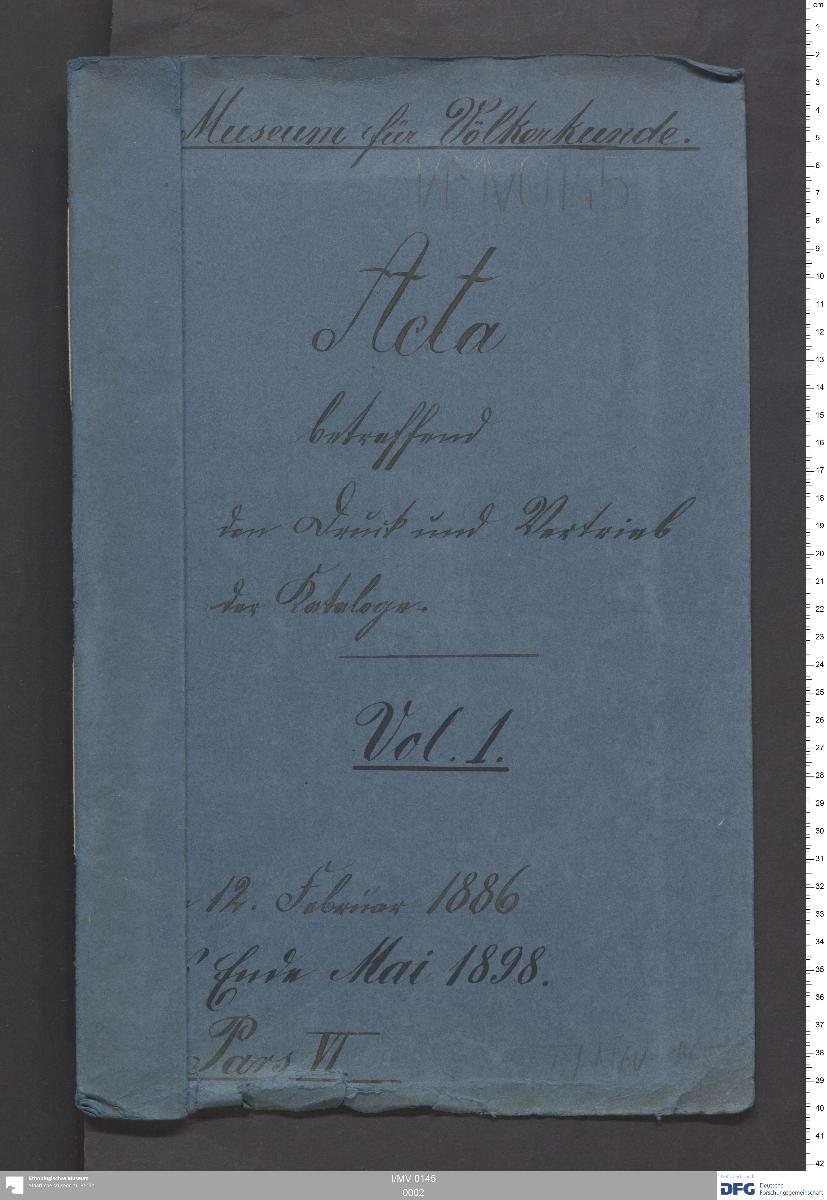 Museum für Völkerkunde.
I/MV 0145
Acta
betreffend
den Druck und Vertrieb
der Kataloge.
Vol. 1.
12. Februar 1886
Ende Mai 1898.
Pars VI
I/MV 0145
cm
1
2
3
4
5
6
7
8
9
10
11
12
13
14
15
16
17
18
19
20
21
22
23
24
25
26
27
28
29
30
31
32
33
34
35
36
37
38
39
40
41
42
Ethnologisches Museum
Staatliche Museen zu Berlin
I/MV 0145
0002
Gefördert durch
DFG Deutsche
Forschungsgemeinschaft